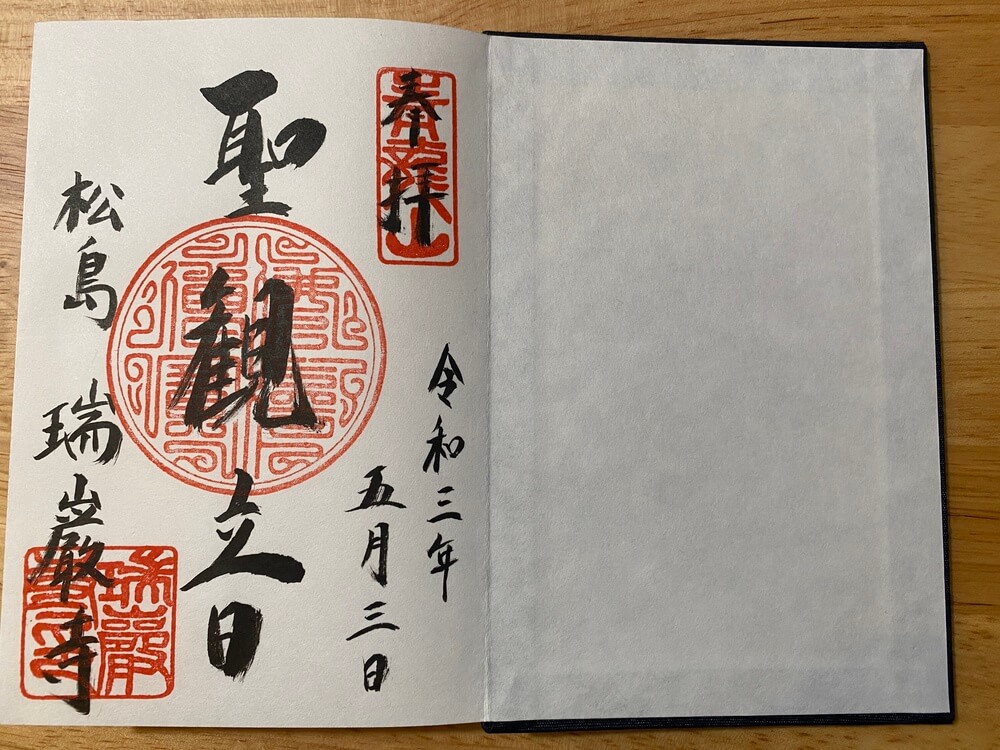 奉拝
青龍山
令和三年
五月三日
聖観音
松島 瑞巌寺
瑞巖
寺印